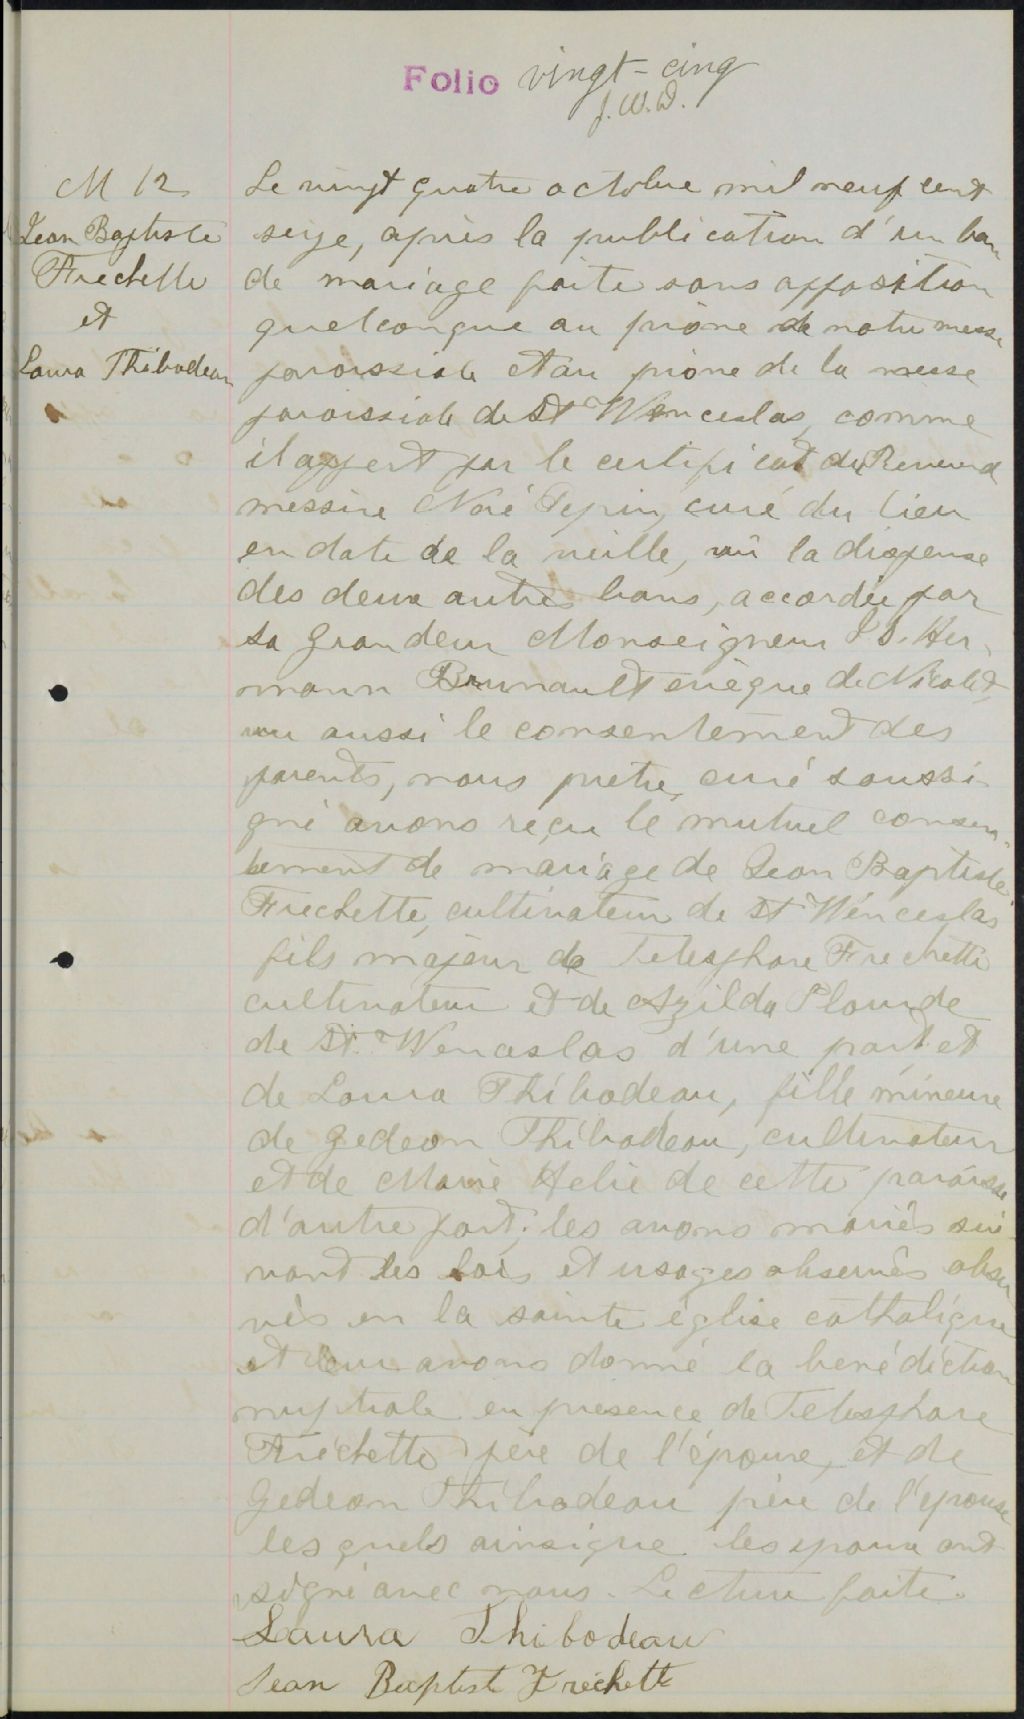 Folio vingt-cinq
J.W.D.
M 12
Jean Baptiste
Frechette
et
Laura Thibodeau
Le vingt quatre octobre mil neuf cent
seize, après la publication d'un ban
de mariage faite sans opposition
quelconque au prône de notre messe
paroissiale et au prône de la messe
paroissiale de St Wenceslas, comme
il appert par le certificat du Reverend
messire Noré Pepin, curé du lieu
en date de la veille, vû la dispense
des deux autres bans, accordée par
sa grandeur Monseigneur J. S. Her-
mann Brunault evèque de Nicolet,
vu aussi le consentement des
parents, nous prêtre curé soussi-
gné avons reçu le mutuel consen-
tement de mariage de Jean Baptiste
Frechette, cultivateur de St Wenceslas
fils majeur de Telesphore Frechette
cultivateur et de Azilda Plourde
de St. Wenceslas d'une part et
de Laura Thibodeau, fille mineure
de Gedeon Thibodeau, cultivateur
et de Marie Helie de cette paroisse
d'autre part; les avons mariés sui-
vant les lois et usages observés obser
vés en la sainte église catholique
et leur avons donné la bénédiction
nuptiale en présence de Telesphore
Fréchette père de l'époux, et de
Gedeon Thibodeau père de l'épouse
lesquels ainsique les epoux ont
signé avec nous. Lecture faite.
Laura Thibodeau
Jean Baptist Frechette